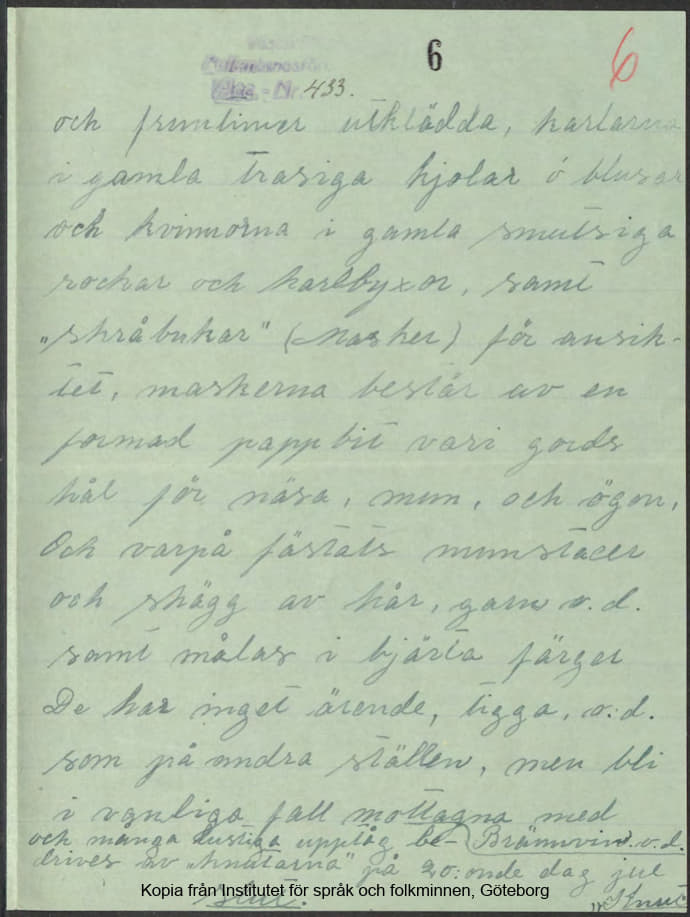 6
6
433.
och fruntimer utklädda, karlarna
i gamla trasiga kjolar ó blusar
och kvinnorna i gamla smutsiga
rockar och karlbyxor, samt
"skråbukar" (Masker) för ansik-
tet, maskerna består av en
formad pappbit vari gords
hål för näsa, mun, och ögon,
Och varpå fästats munstacer
och skägg av hår, garn o.d.
samt målas i bjärta färger
De har inget ärende, tigga, o.d.
som på andra ställen, men bli
i vanliga fall mottagna med
Brännvin o.d.
och många lustiga upptåg be-
drives av "knutarna" på 20:onde dag jul
slut.
Kopia från Institutet för språk och folkminnen, Göteborg